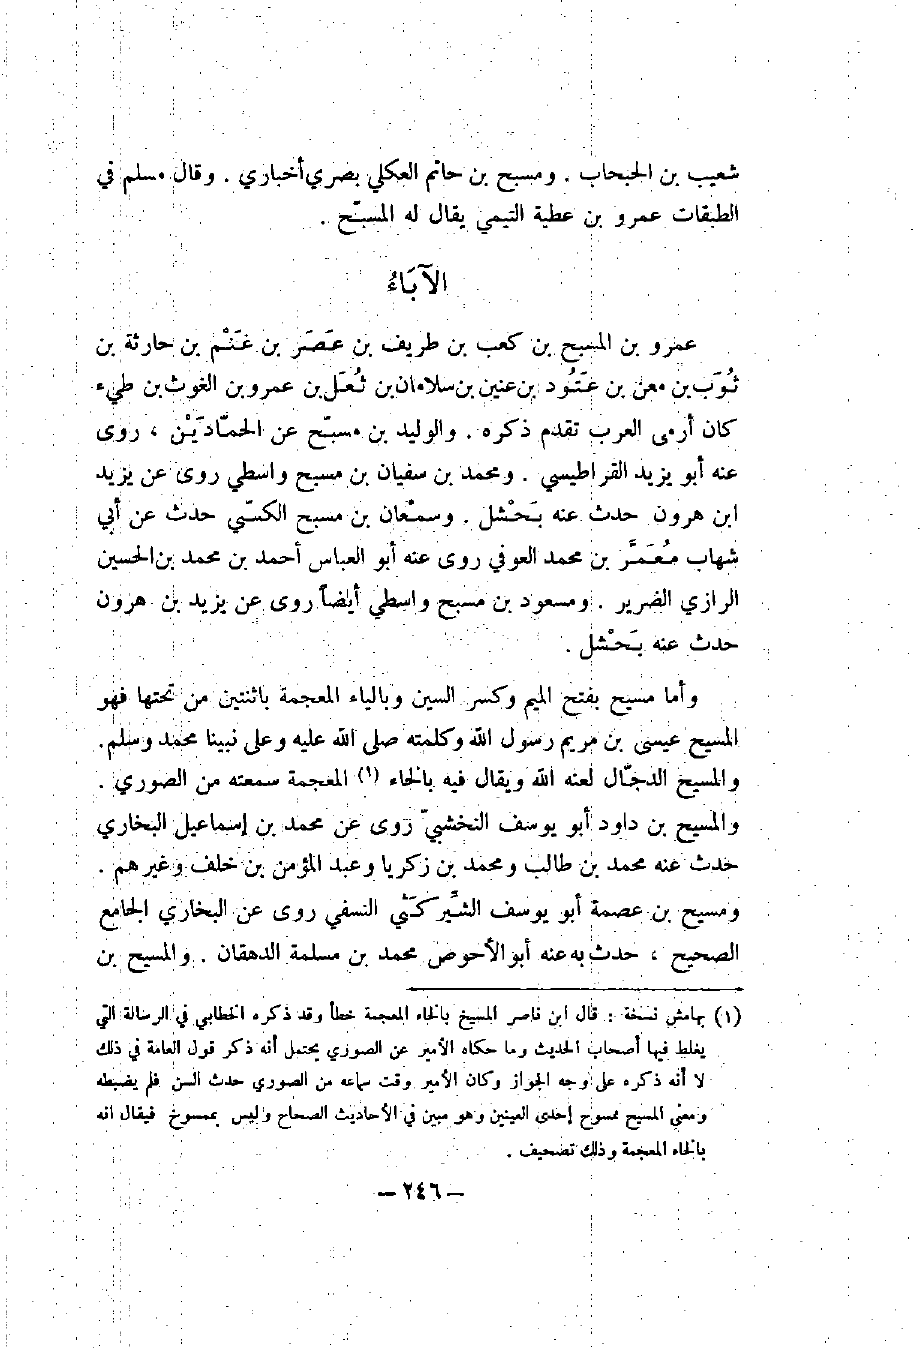 شعيب بن الحبحاب . ومسبح بن حاتم العكلي بصري أخباري . وقال مسلم في
الطبقات عمرو بن عطية التيمي يقال له المسبّح .
الآبَاءُ
عمرو بن المسبح بن كعب بن طريف بن عَصَر بن غَنْم بن حارثة بن
ثُوَب بن معن بن عَتُود بن عنين بن سلامان بن ثُعَل بن عمرو بن الغوث بن طيء
كان أرمى العرب تقدم ذكره . والوليد بن مسبّح عن الحمّادَيْن ، روى
عنه أبو يزيد القراطيسي . ومحمد بن سفيان بن مسبح واسطي روى عن يزيد
ابن هرون حدث عنه بَحْشل . وسمْعان بن مسبح الكسّي حدث عن أبي
شهاب مُعَمَّر بن محمد العوفي روى عنه أبو العباس أحمد بن محمد بن الحسين
الرازي الضرير . ومسعود بن مسبح واسطي أيضاً روى عن يزيد بن هرون
حدث عنه بَحْشل .
وأما مسيح بفتح الميم وكسر السين وبالياء المعجمة باثنتين من تحتها فهو
المسيح عيسى بن مريم رسول الله وكلمته صلى الله عليه وعلى نبينا محمد وسلم.
والمسيح الدجّال لعنه الله ويقال فيه بالخاء (١) المعجمة سمعته من الصوري .
والمسيح بن داود أبو يوسف النخشبيّ روى عن محمد بن إسماعيل البخاري
حدث عنه محمد بن طالب ومحمد بن زكريا وعبد المؤمن بن خلف وغيرهم .
ومسيح بن عصمة أبو يوسف الشِّيركَثي النسفي روى عن البخاري الجامع
الصحيح ، حدث به عنه أبو الأحوص محمد بن مسلمة الدهقان . والمسيح بن
(١) بهامش نسخة : قال ابن ناصر المسيخ بالخاء المعجمة خطأ وقد ذكره الخطابي في الرسالة التي
يغلط فيها أصحاب الحديث وما حكاه الأمير عن الصوري يحتمل أنه ذكر قول العامة في ذلك
لا أنه ذكره على وجه الجواز وكان الأمير وقت سماعه من الصوري حدث السن فلم يضبطه
ومعنى المسيح ممسوح إحدى العينين وهو مبين في الأحاديث الصحاح وليس بممسوخ فيقال انه
بالخاء المعجمة وذلك تصحيف .
— ٢٤٦ —